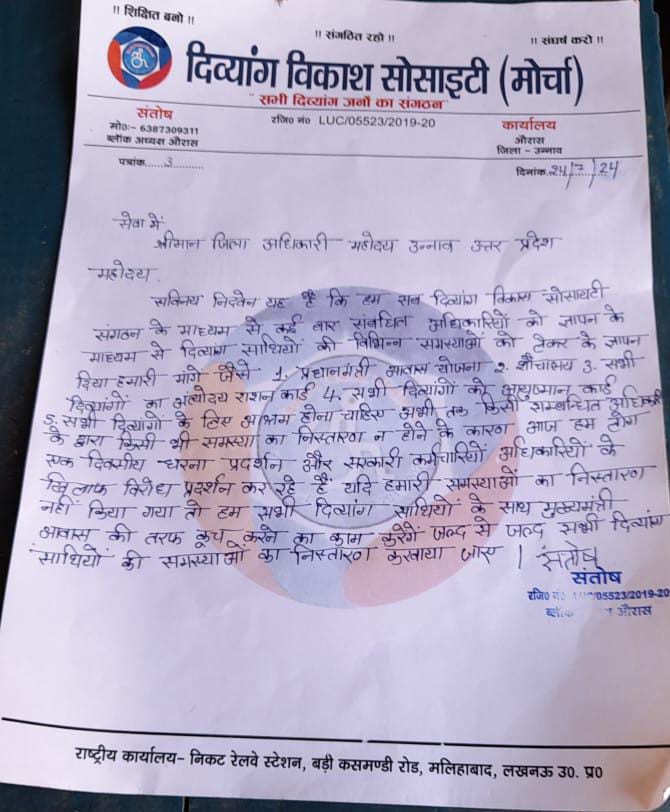 !! शिक्षित बनो !!
!! संगठित रहो !!
!! संघर्ष करो !!
दिव्यांग विकाश सोसाइटी (मोर्चा)
"सभी दिव्यांग जनों का संगठन"
संतोष
मो०:- 6387309311
ब्लॉक अध्यक्ष औरास
रजि० नं० LUC/05523/2019-20
कार्यालय
औरास
जिला - उन्नाव
पत्रांक......3..........
दिनांक.24/7/24
सेवा में
श्रीमान जिला अधिकारी महोदय उन्नाव उत्तर प्रदेश
महोदय.
सविनय निवेदन यह है कि हम सब दिव्यांग विकास सोसायटी
संगठन के माध्यम से कई बार संबधित अधिकारियों को ज्ञापन के
माध्यम से दिव्यांग साथियों की विभिन्न समस्याओं को लेकर के ज्ञापन
दिया हमारी मांगे जैसे 1. प्रधानमंत्री आवास योजना 2. शौचालय 3. सभी
दिव्यांगों का अंत्योदय राशन कार्ड 4. सभी दिव्यांगों को आयुष्मान कार्ड
5. सभी दिव्यांगों के लिए आश्रम होना चाहिए अभी तक किसी सम्बन्धित अधिकारी
के द्वारा किसी भी समस्या का निस्तारण न होने के कारण आज हम लोग
एक दिवसीय धरना प्रदर्शन और सरकारी कर्मचारियों अधिकारियों के
खिलाफ विरोध प्रदर्शन कर रहे हैं यदि हमारी समस्याओं का निस्तारण
नहीं किया गया तो हम सभी दिव्यांग साथियों के साथ मुख्यमंत्री
आवास की तरफ कूच करने का काम करेंगें जल्द से जल्द सभी दिव्यांग
साथियों की समस्याओं का निस्तारण करवाया जाए । संतोष
संतोष
रजि० नं० LUC/05523/2019-20
ब्लॉक औरास
राष्ट्रीय कार्यालय- निकट रेलवे स्टेशन, बड़ी कसमण्डी रोड, मलिहाबाद, लखनऊ उ० प्र०